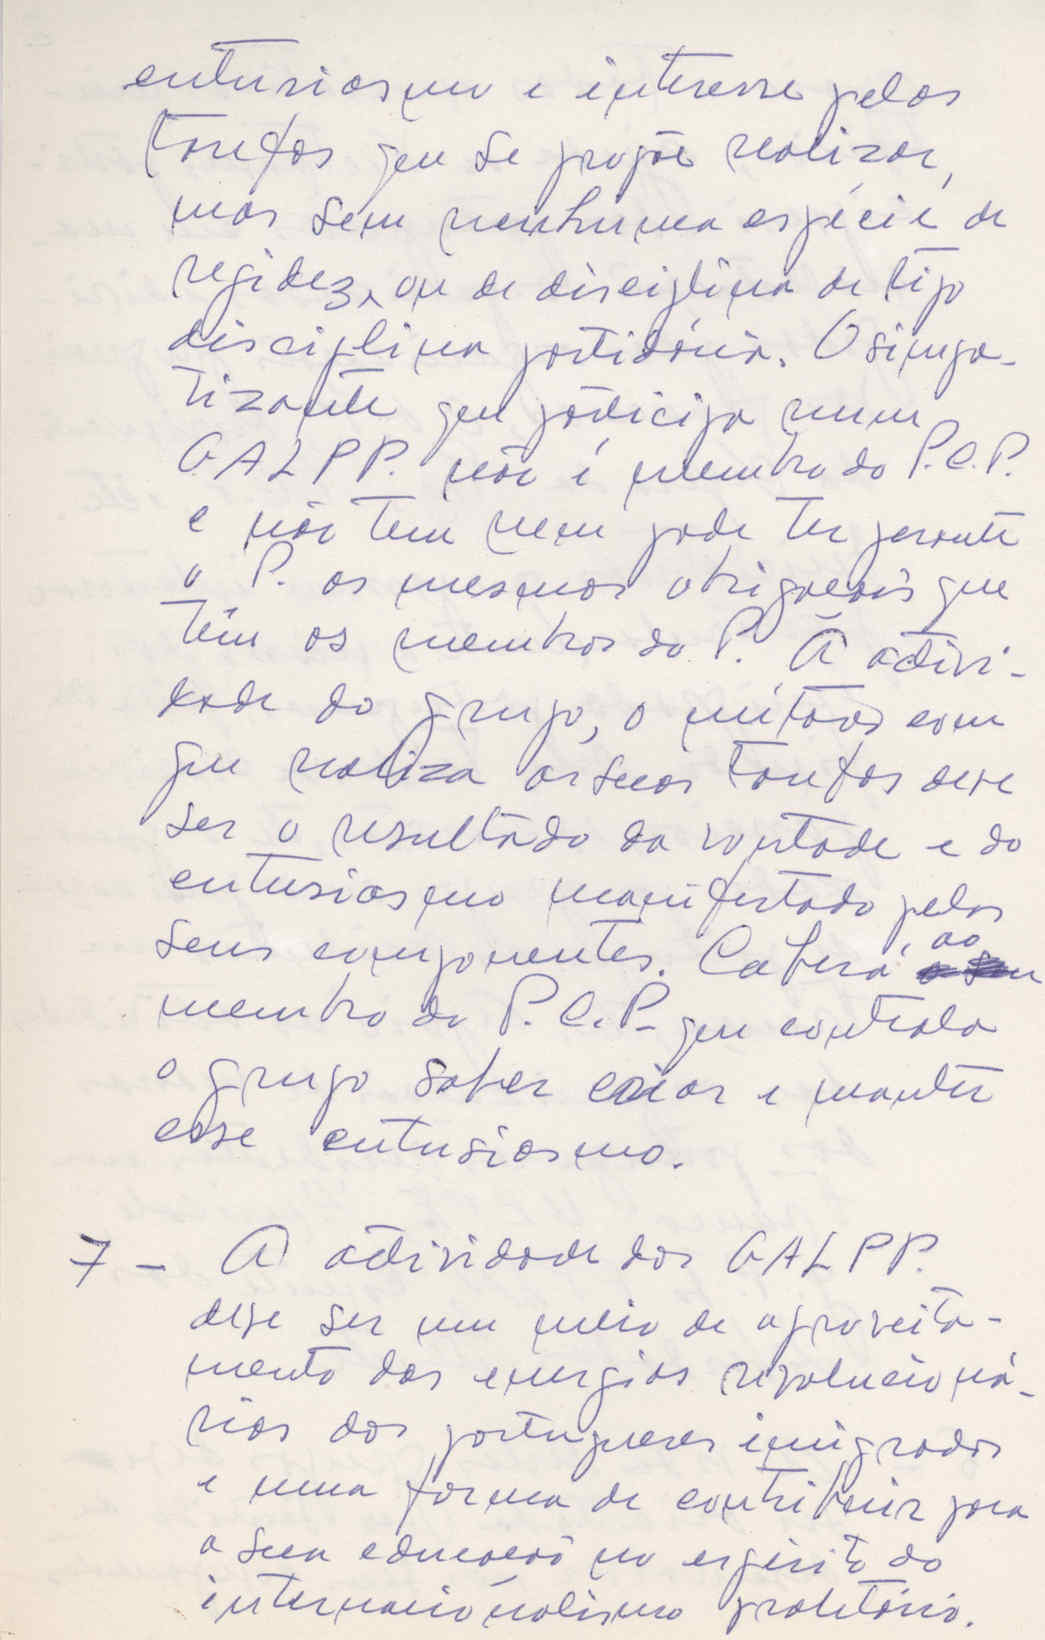 entusiasmo e interesse pelas
tarefas que se propõe realizar,
mas sem nenhuma espécie de
regidez, ou de disciplina de tipo
disciplina partidária. O simpa-
tizante que participa num
GALPP. não é membro do P.C.P.
e não tem nem pode ter perante
o P. as mesmas obrigações que
têm os membros do P. A activi-
dade do grupo, o            com
que realiza as suas tarefas deve
ser o resultado da vontade e do
entusiasmo manifestado pelos
seus componentes. Caberá ao
membro do P.C.P. que controla
o grupo saber criar e manter
esse entusiasmo.
7 - A actividade dos GALPP.
deve ser um meio de aproveita-
mento das energias revolucioná-
rias dos portugueses imigrados
e uma forma de contribuir para
a sua educação no espírito do
internacionalismo proletário.